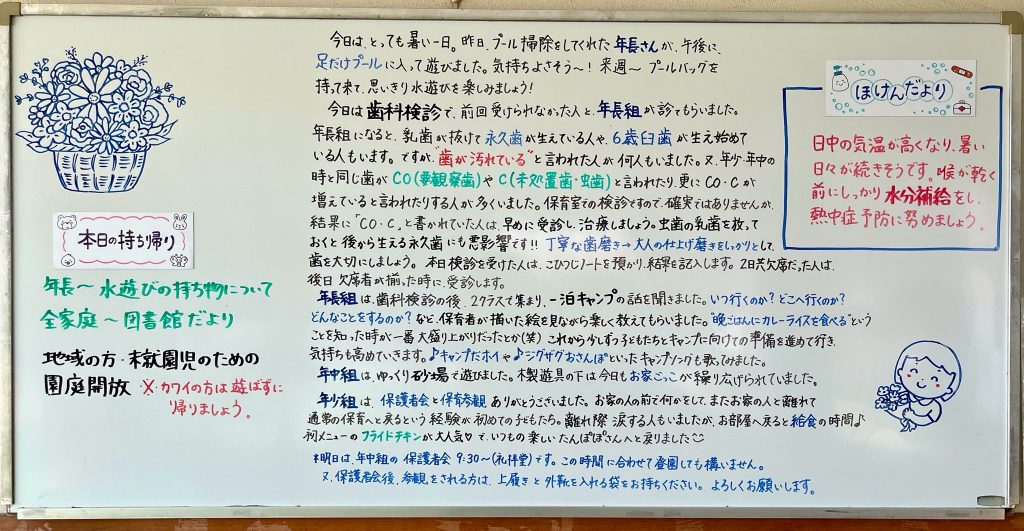 今日は、とっても暑い一日。昨日、プール掃除をしてくれた年長さんが、午後に、
足だけプールに入って遊びました。気持ちよさそう〜！来週〜プールバッグを
持って来て、思いきり水遊びを楽しみましょう！
今日は歯科検診で、前回受けられなかった人と、年長組が診てもらいました。
年長組になると、乳歯が抜けて永久歯が生えている人や、6歳臼歯が生え始めて
いる人もいます。ですが、"歯が汚れている"と言われた人が何人もいました。又、年少・年中の
時と同じ歯がCO(要観察歯)やC(未処置歯・虫歯)と言われたり、更にCO・Cが
増えていると言われたりする人が多くいました。保育室での検診ですので、確実ではありませんが、
結果に「CO・C」と書かれていた人は、早めに受診し、治療しましょう。虫歯の乳歯を放って
おくと後から生える永久歯にも悪影響です!!丁寧な歯磨き→大人の仕上げ磨きをしっかりとして、
歯を大切にしましょう。本日検診を受けた人は、こひつじノートを預かり、結果を記入します。2日共欠席だった人は、
後日欠席者が揃った時に、受診します。
年長組は、歯科検診の後、2クラスで集まり、一泊キャンプの話を聞きました。いつ行くのか？どこへ行くのか？
どんなことをするのか？など、保育者が描いた絵を見ながら楽しく教えてもらいました。"晩ごはんにカレーライスを食べる"という
ことを知った時が一番大盛り上がりだったとか(笑)これから少しずつ子どもたちとキャンプに向けての準備を進めて行き、
気持ちも高めていきます。♪キャンプだホイや♪ジグザグおさんぽといったキャンプソングも歌ってみました。
年中組は、ゆっくり砂場で遊びました。木製遊具の下は今日もお家ごっこが繰り広げられていました。
年少組は、保護者会と保育参観ありがとうございました。お家の人の前で何かをして、またお家の人と離れて
通常の保育へと戻るという経験が初めての子どもたち。離れ際涙する人もいましたが、お部屋へ戻ると給食の時間♪
初メニューのフライドチキンが大人気♡で、いつもの楽しいたんぽぽさんへと戻りました☺
*明日は、年中組の保護者会9:30〜(礼拝堂)です。この時間に合わせて登園しても構いません。
又、保護者会後、参観をされる方は、上履きと外靴を入れる袋をお持ちください。よろしくお願いします。
本日の持ち帰り
年長〜水遊びの持ち物について
全家庭〜図書館だより
地域の方・未就園児のための
園庭開放 ※カワイの方は遊ばずに
帰りましょう。
ほけんだより
日中の気温が高くなり、暑い
日々が続きそうです。喉が乾く
前にしっかり水分補給をし、
熱中症予防に努めましょう。